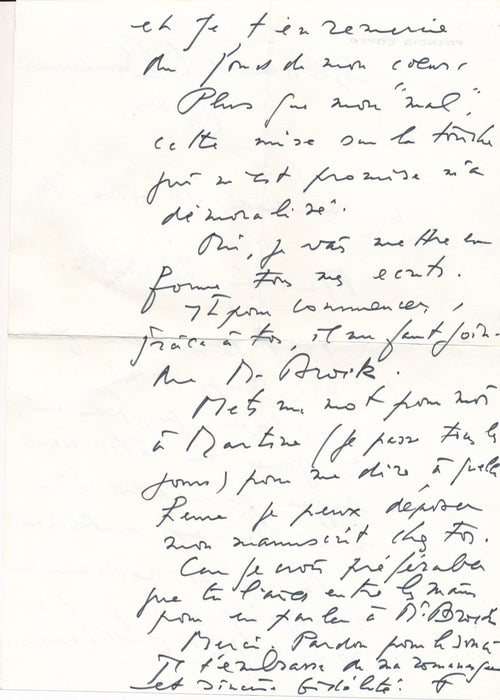 et je t'en remercie
du fond de mon cœur.
Plus que mon "mal",
cette mise sur la touche
qui m'est promise m'a
démoralisé.
Oui, je vais mettre en
forme tous mes écrits.
Et pour commencer,
grâce à toi, il me faut join-
dre M. Brock.
Mets un mot pour moi
à Martine (je passe tous les
jours) pour me dire à quelle
heure je peux déposer
mon manuscrit chez toi.
Car je crois préférable
que tu l'aies entre les mains
pour en parler à Mr Brock
Merci. Pardon pour le
Je t'embrasse de ma
et sincère fidélité F